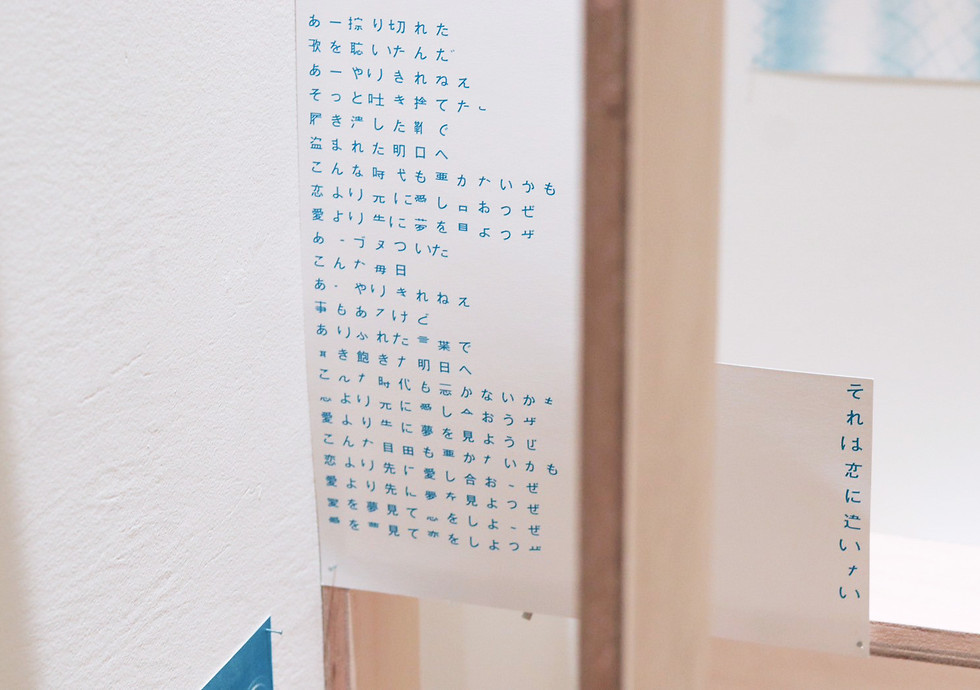 あー擦り切れた
歌を聴いたんだ
あーやりきれねえ
そっと吐き捨てたこ
履き潰した靴で
盗まれた明日へ
こんな時代も悪かないかも
恋より先に愛し合おうぜ
愛より先に夢を見ようぜ
あーゴタついた
こんな毎日
あーやりきれねえ
事もあるけど
ありふれた言葉で
聞き飽きた明日へ
こんな時代も悪かないかも
恋より先に愛し合おうぜ
愛より先に夢を見ようぜ
こんな自由も悪かないかも
恋より先に愛し合おうぜ
愛より先に夢を見ようぜ
愛を夢見て恋をしようぜ
愛を夢見て恋をしようぜ
それは恋に違いない